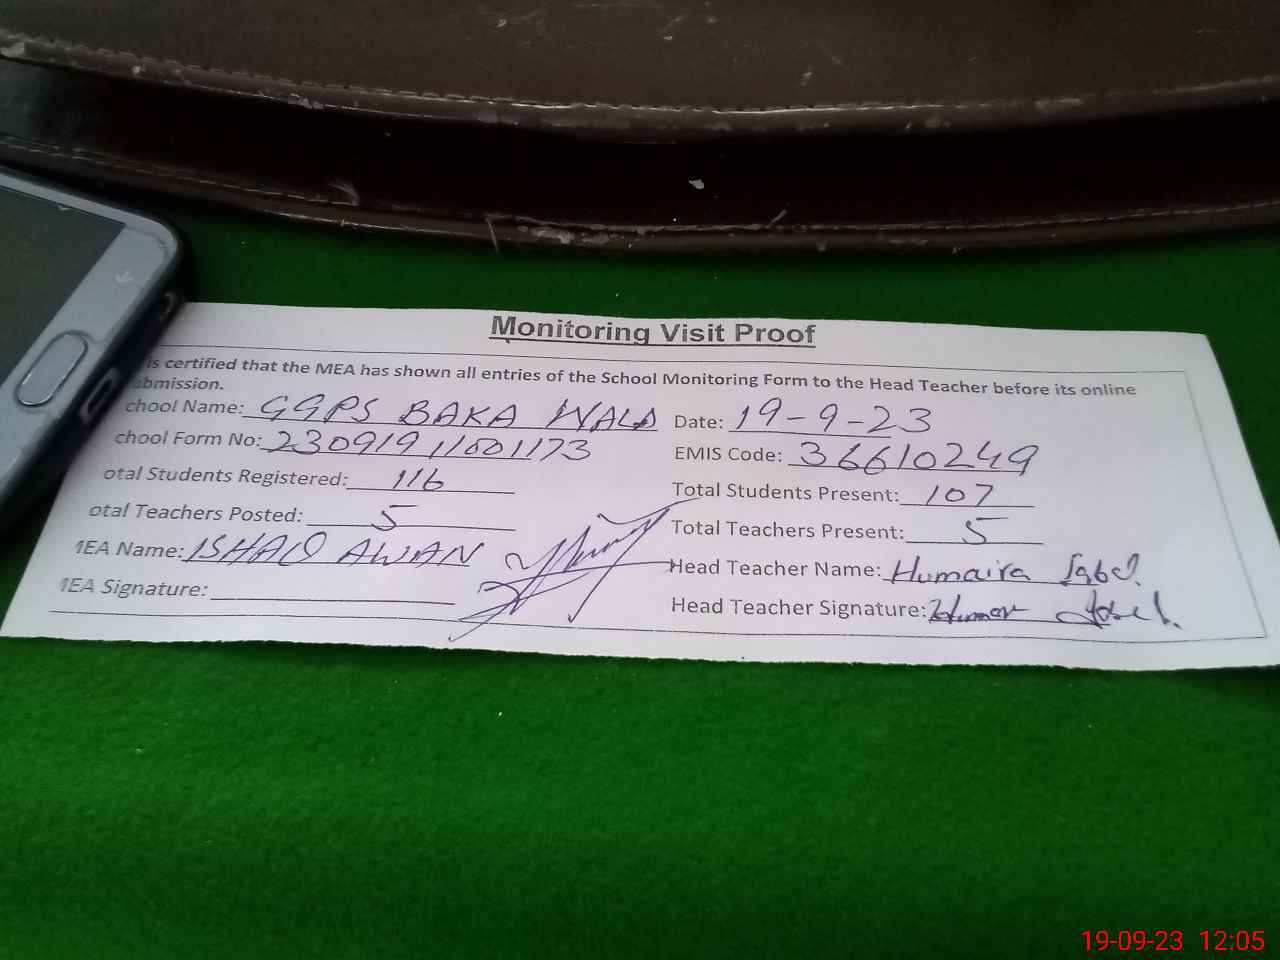 Monitoring Visit Proof
is certified that the MEA has shown all entries of the School Monitoring Form to the Head Teacher before its online
ubmission.
chool Name: GGPS BAKA WALA Date: 19-9-23
chool Form No: 23091911001173 EMIS Code: 36610249
otal Students Registered: 116 Total Students Present: 107
otal Teachers Posted: 5 Total Teachers Present: 5
MEA Name: ISHAQ AWAN Head Teacher Name: Humaira Iqbal.
MEA Signature: Head Teacher Signature:
19-09-23 12:05